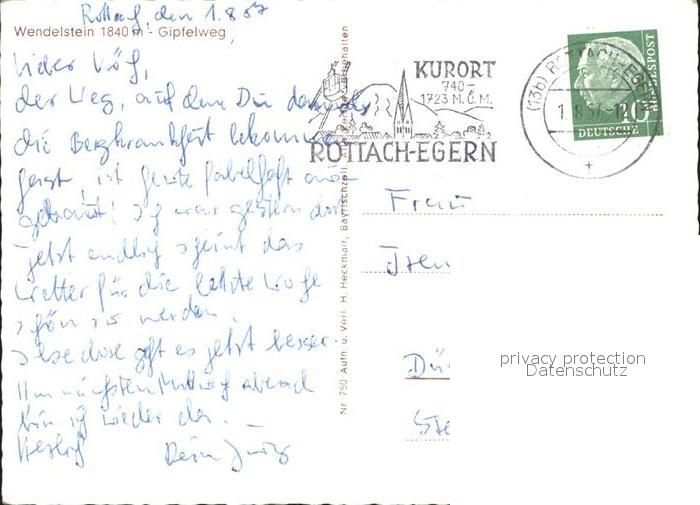 Rottach, den 1.8.57
Wendelstein 1840 m - Gipfelweg
der Weg, auf dem Du damals
die Bergkrankheit bekommen
ist heute fabelhaft aus-
gebaut! Ich war gestern dort
jetzt endlich scheint das
Wetter für die letzte Woche
schön zu werden.
geht es jetzt besser.
Am nächsten Mittwoch abend
bin ich wieder da. –
Herzlich Dein
Nr. 750 Aufn. u. Verl. H. Heckmair, Bayrischzell
KURORT
740-
1723 M. Ü. M.
ROTTACH-EGERN
(13b) ROTTACH-EGERN
1.8.57.-12
DEUTSCHE
BUNDESPOST
10
Frau
Dü
privacy protection
Datenschutz